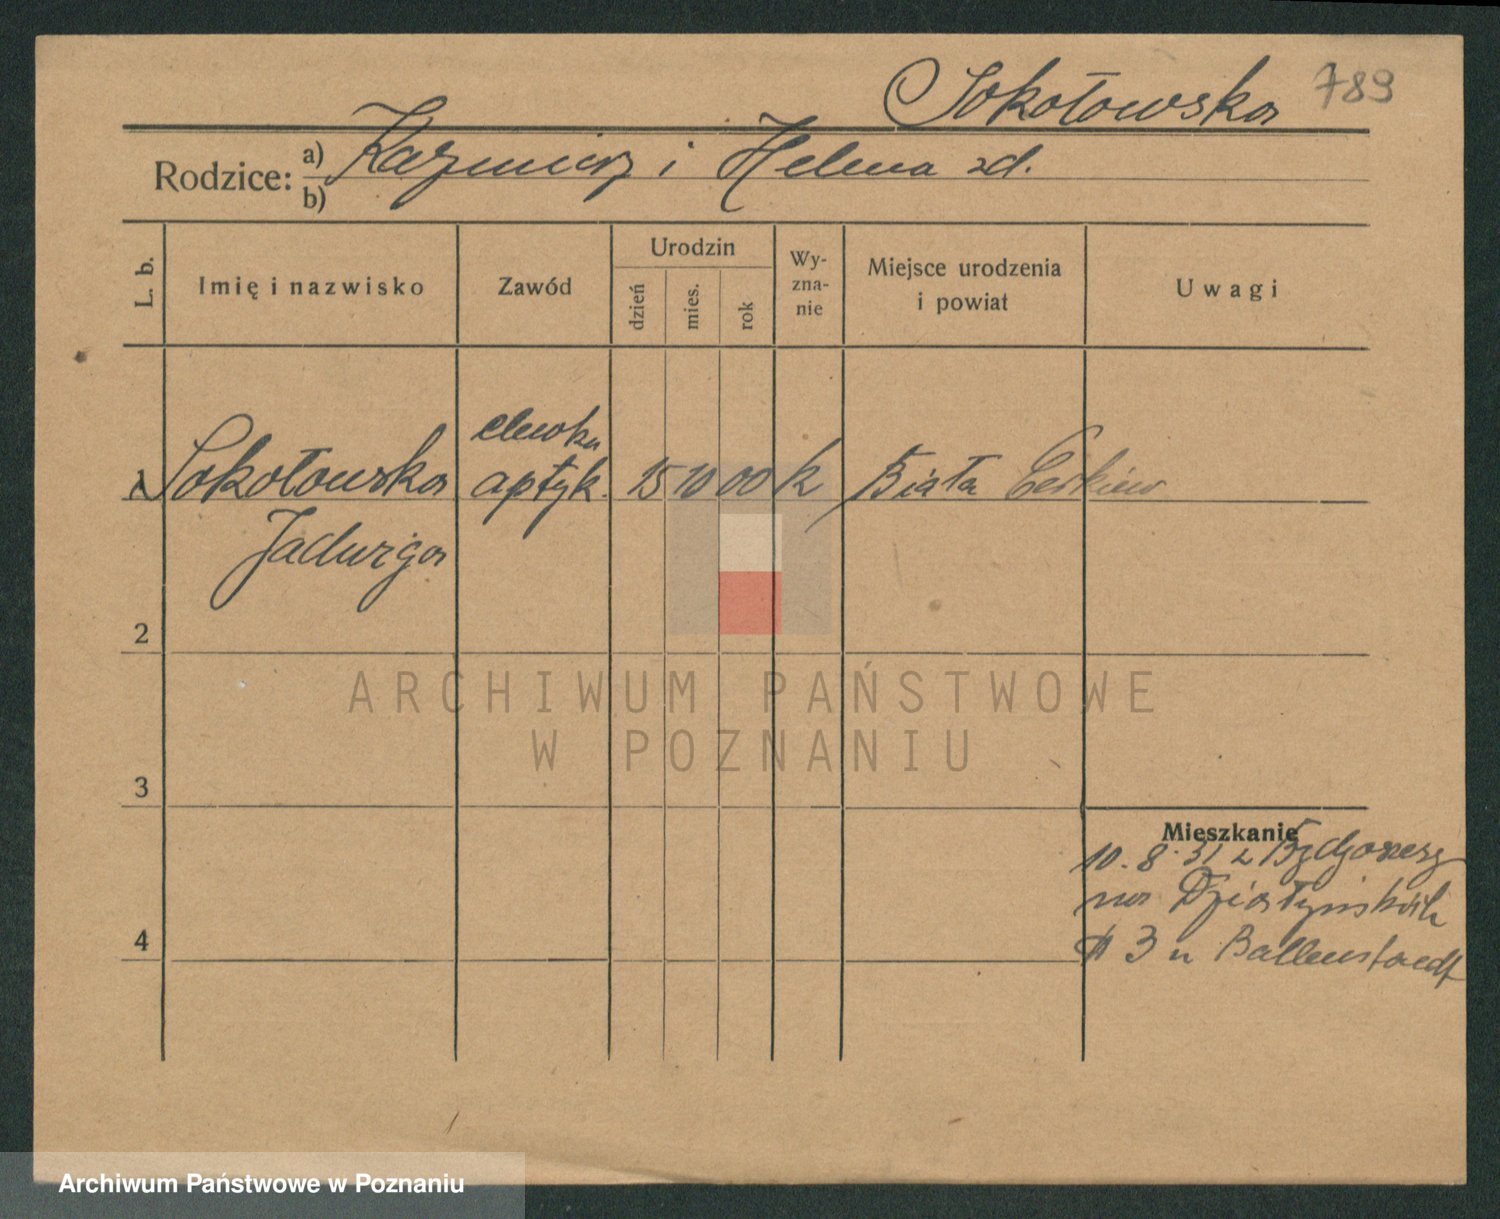 Sokołowska 789
Rodzice: a) Kazmierz i Helena zd.
b)
L. b.
Imię i nazwisko
Zawód
Urodzin
dzień
mies.
rok
Wy-
zna-
nie
Miejsce urodzenia
i powiat
Uwagi
elewka
1 Sokołowska aptyk. 15 10 00 k Biała Cerkiew
Jadwiga
2
3
4
Mieszkanie
10. 8. 31 z Bydgoszcz
na Działyńskich
3 u Ballenstaedt
ARCHIWUM PAŃSTWOWE
W POZNANIU
Archiwum Państwowe w Poznaniu